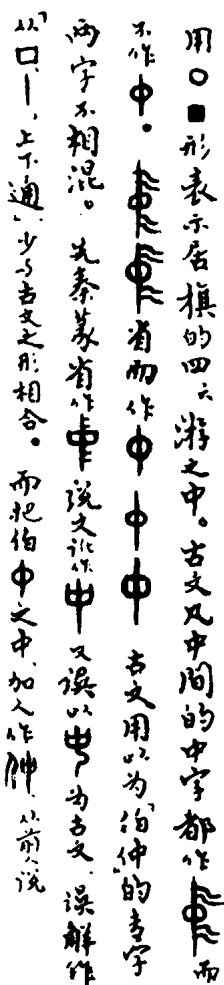 用○■形表示居旗的四六游之中。古文凡中间的中字都作而
不作中。省而作中中中古文用以为“伯仲”的专字
两字不相混。先秦篆省作说文讹作中又误以为古文,误解作
从“口、丨,上下通”,少与古文之形相合。而把伯中之中,加人作仲,从前人说